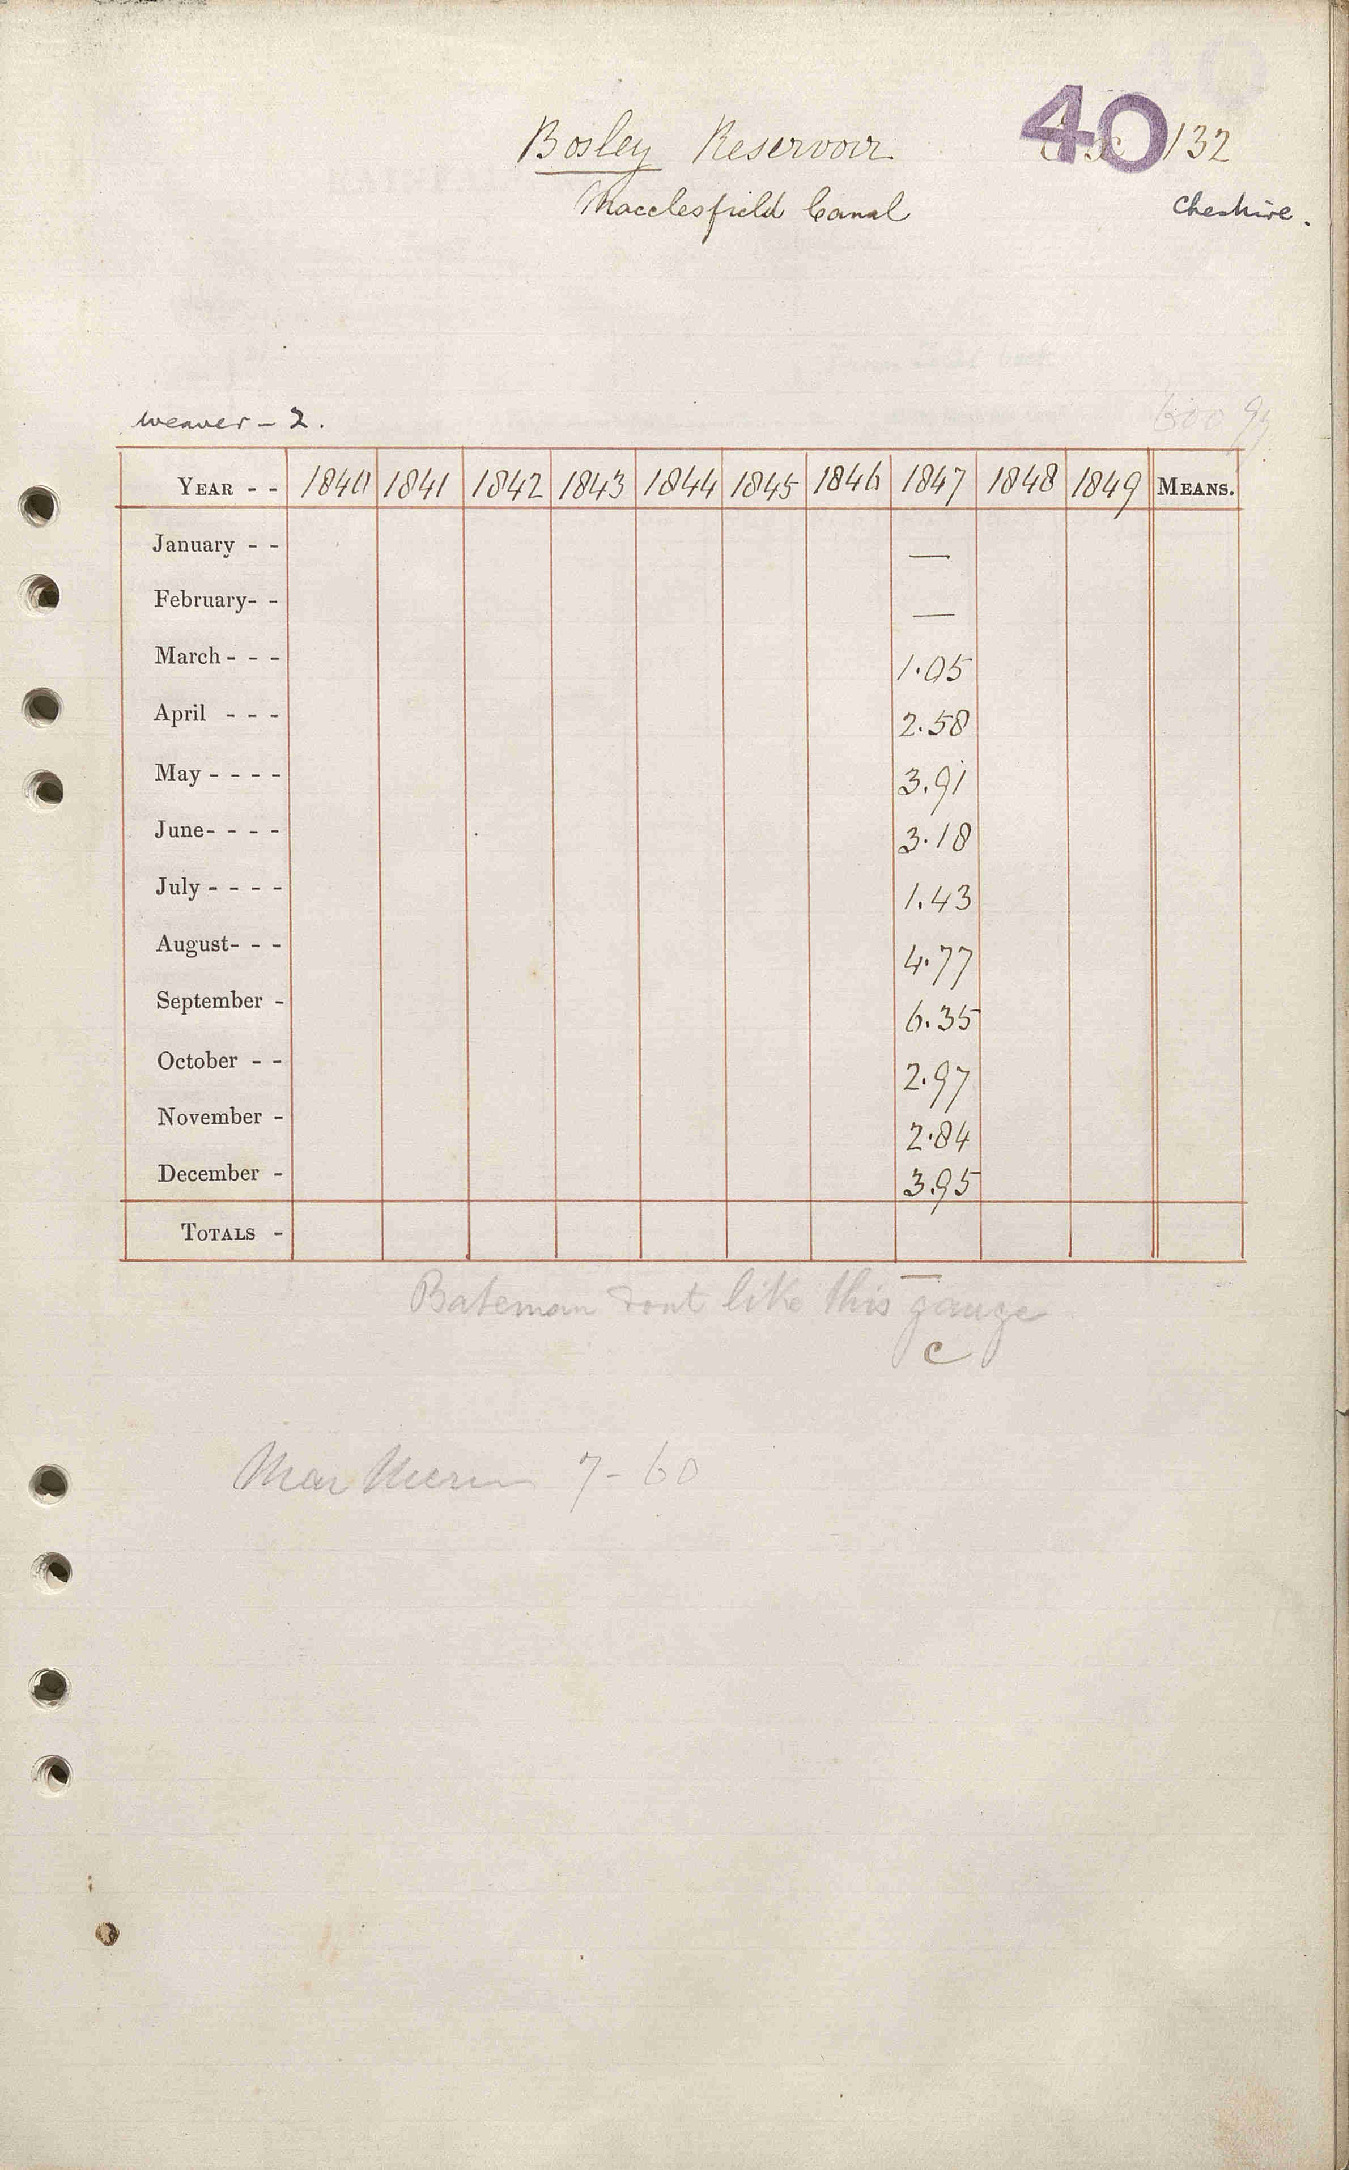 40
Bosley Reservoir 132
Macclesfield Canal Cheshire.
weaver - 2. 600
YEAR - - 1840 1841 1842 1843 1844 1845 1846 1847 1848 1849 MEANS.
January - - —
February- - —
March - - - 1.05
April - - - 2.58
May - - - - 3.91
June- - - - 3.18
July - - - - 1.43
August- - - 4.77
September - 6.35
October - - 2.97
November - 2.84
December - 3.95
TOTALS -
Bateman dont like this gauge
c
7 - 60